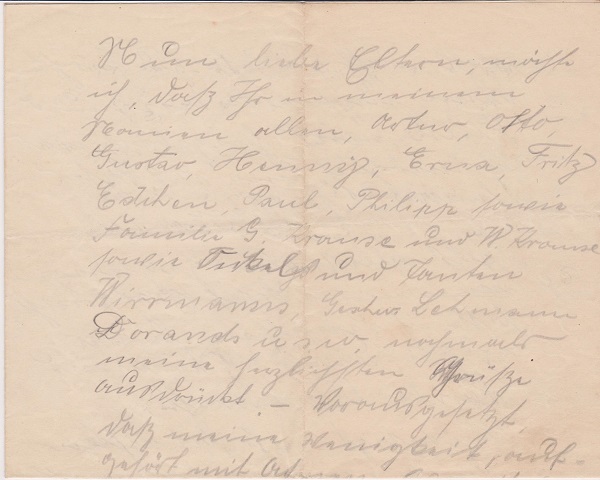 Nun liebe Eltern, möchte
ich, daß Ihr in meinem
Namen allen, Artur, Otto,
Gustav, Hennig, Erna, Fritz
Edchen, Paul, Philipp sowie
Familie G. Krause und W. Krause
sowie und Tanten
Wirrmanns, Lehmann
Dorands u s w. nochmals
meine herzlichsten Grüße
ausdrückt — Vorausgesetzt,
daß meine Wenigkeit, auf-
gehört mit